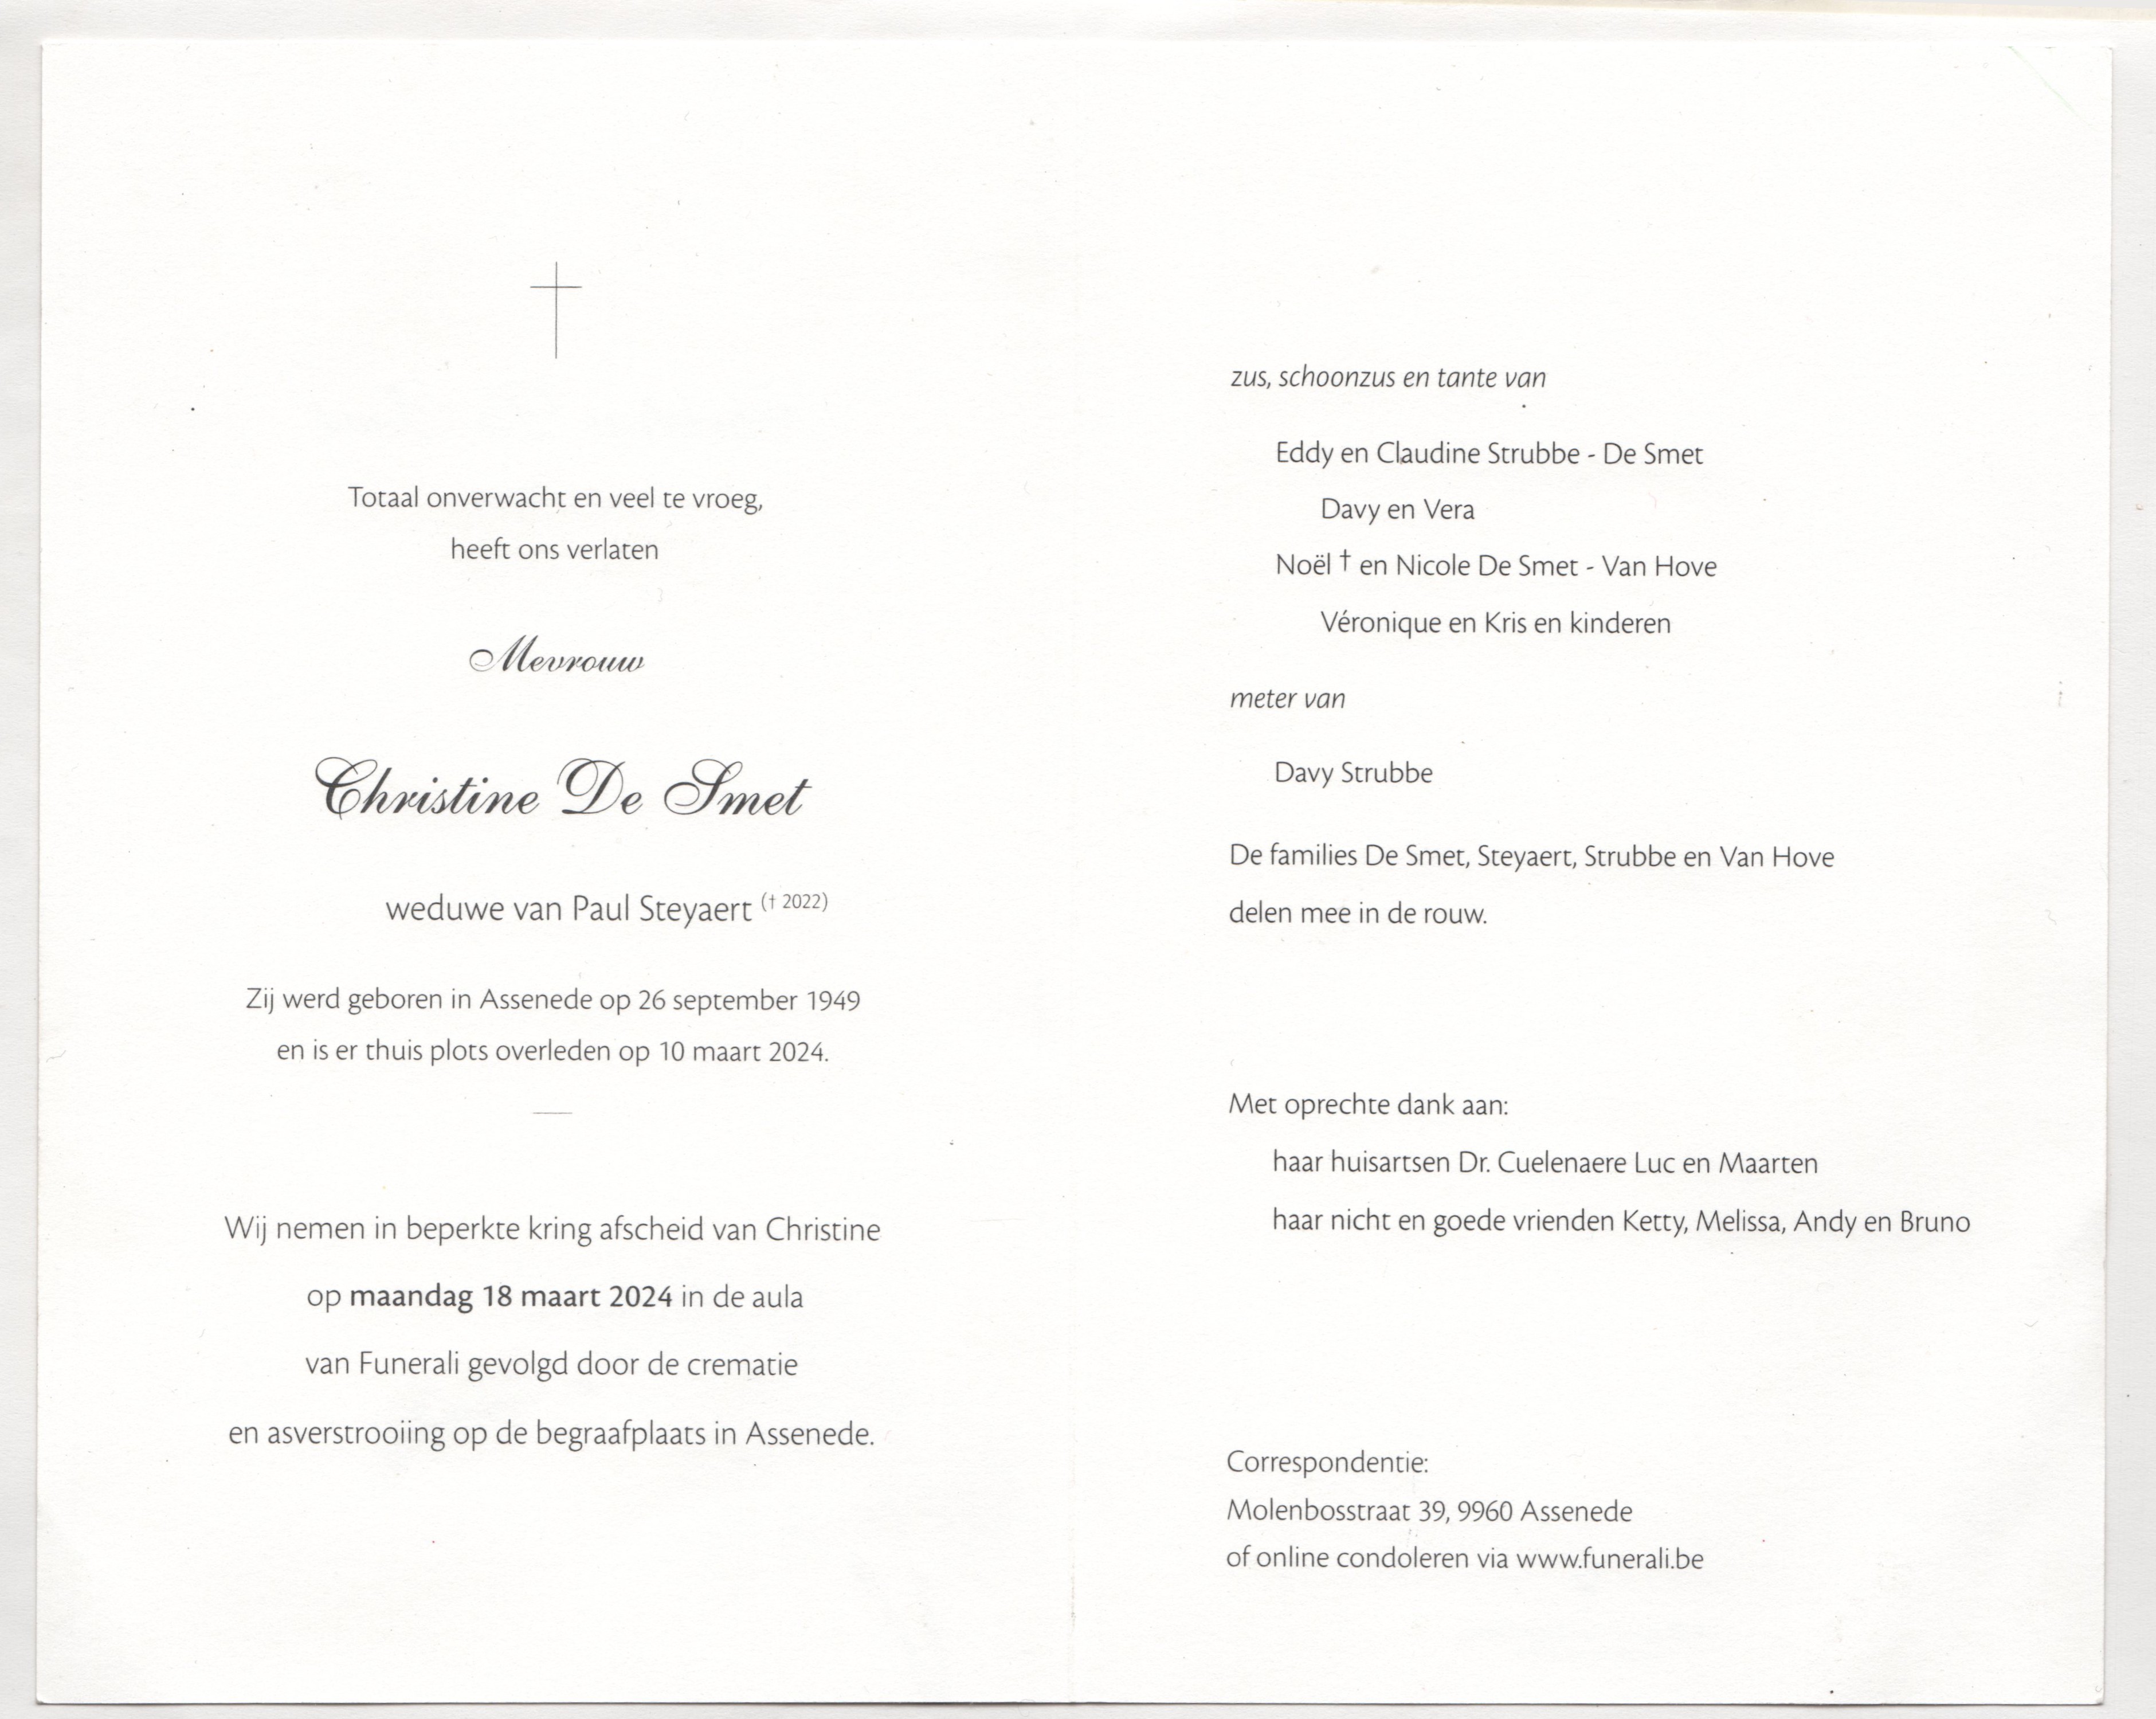 Totaal onverwacht en veel te vroeg,
heeft ons verlaten
Mevrouw
Christine De Smet
weduwe van Paul Steyaert († 2022)
Zij werd geboren in Assenede op 26 september 1949
en is er thuis plots overleden op 10 maart 2024.
Wij nemen in beperkte kring afscheid van Christine
op maandag 18 maart 2024 in de aula
van Funerali gevolgd door de crematie
en asverstrooiing op de begraafplaats in Assenede.
zus, schoonzus en tante van
Eddy en Claudine Strubbe - De Smet
Davy en Vera
Noël † en Nicole De Smet - Van Hove
Véronique en Kris en kinderen
meter van
Davy Strubbe
De families De Smet, Steyaert, Strubbe en Van Hove
delen mee in de rouw.
Met oprechte dank aan:
haar huisartsen Dr. Cuelenaere Luc en Maarten
haar nicht en goede vrienden Ketty, Melissa, Andy en Bruno
Correspondentie:
Molenbosstraat 39, 9960 Assenede
of online condoleren via www.funerali.be